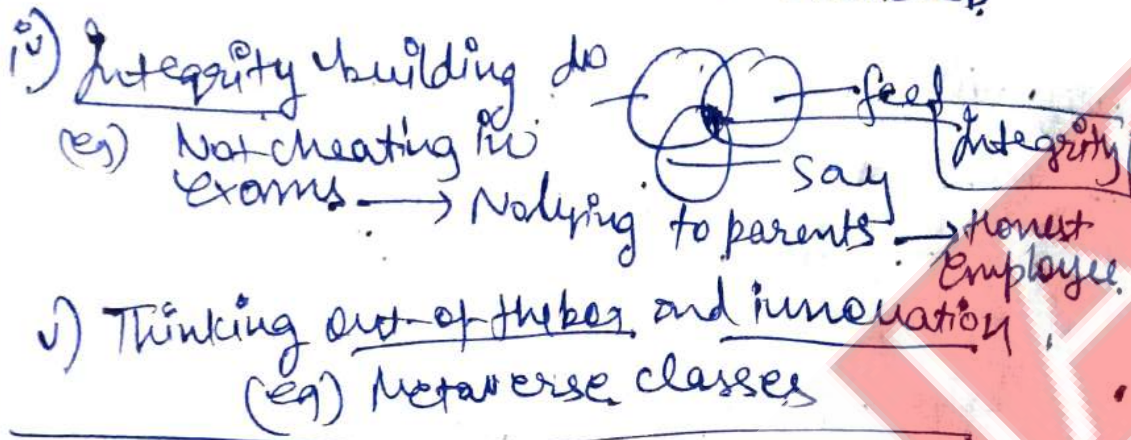 iv) Integrity building do
feel
Integrity
(eg) Not cheating in
say
exams → No lying to parents → Honest
Employee.
v) Thinking out-of-the box and innovation
(eg) Metaverse classes